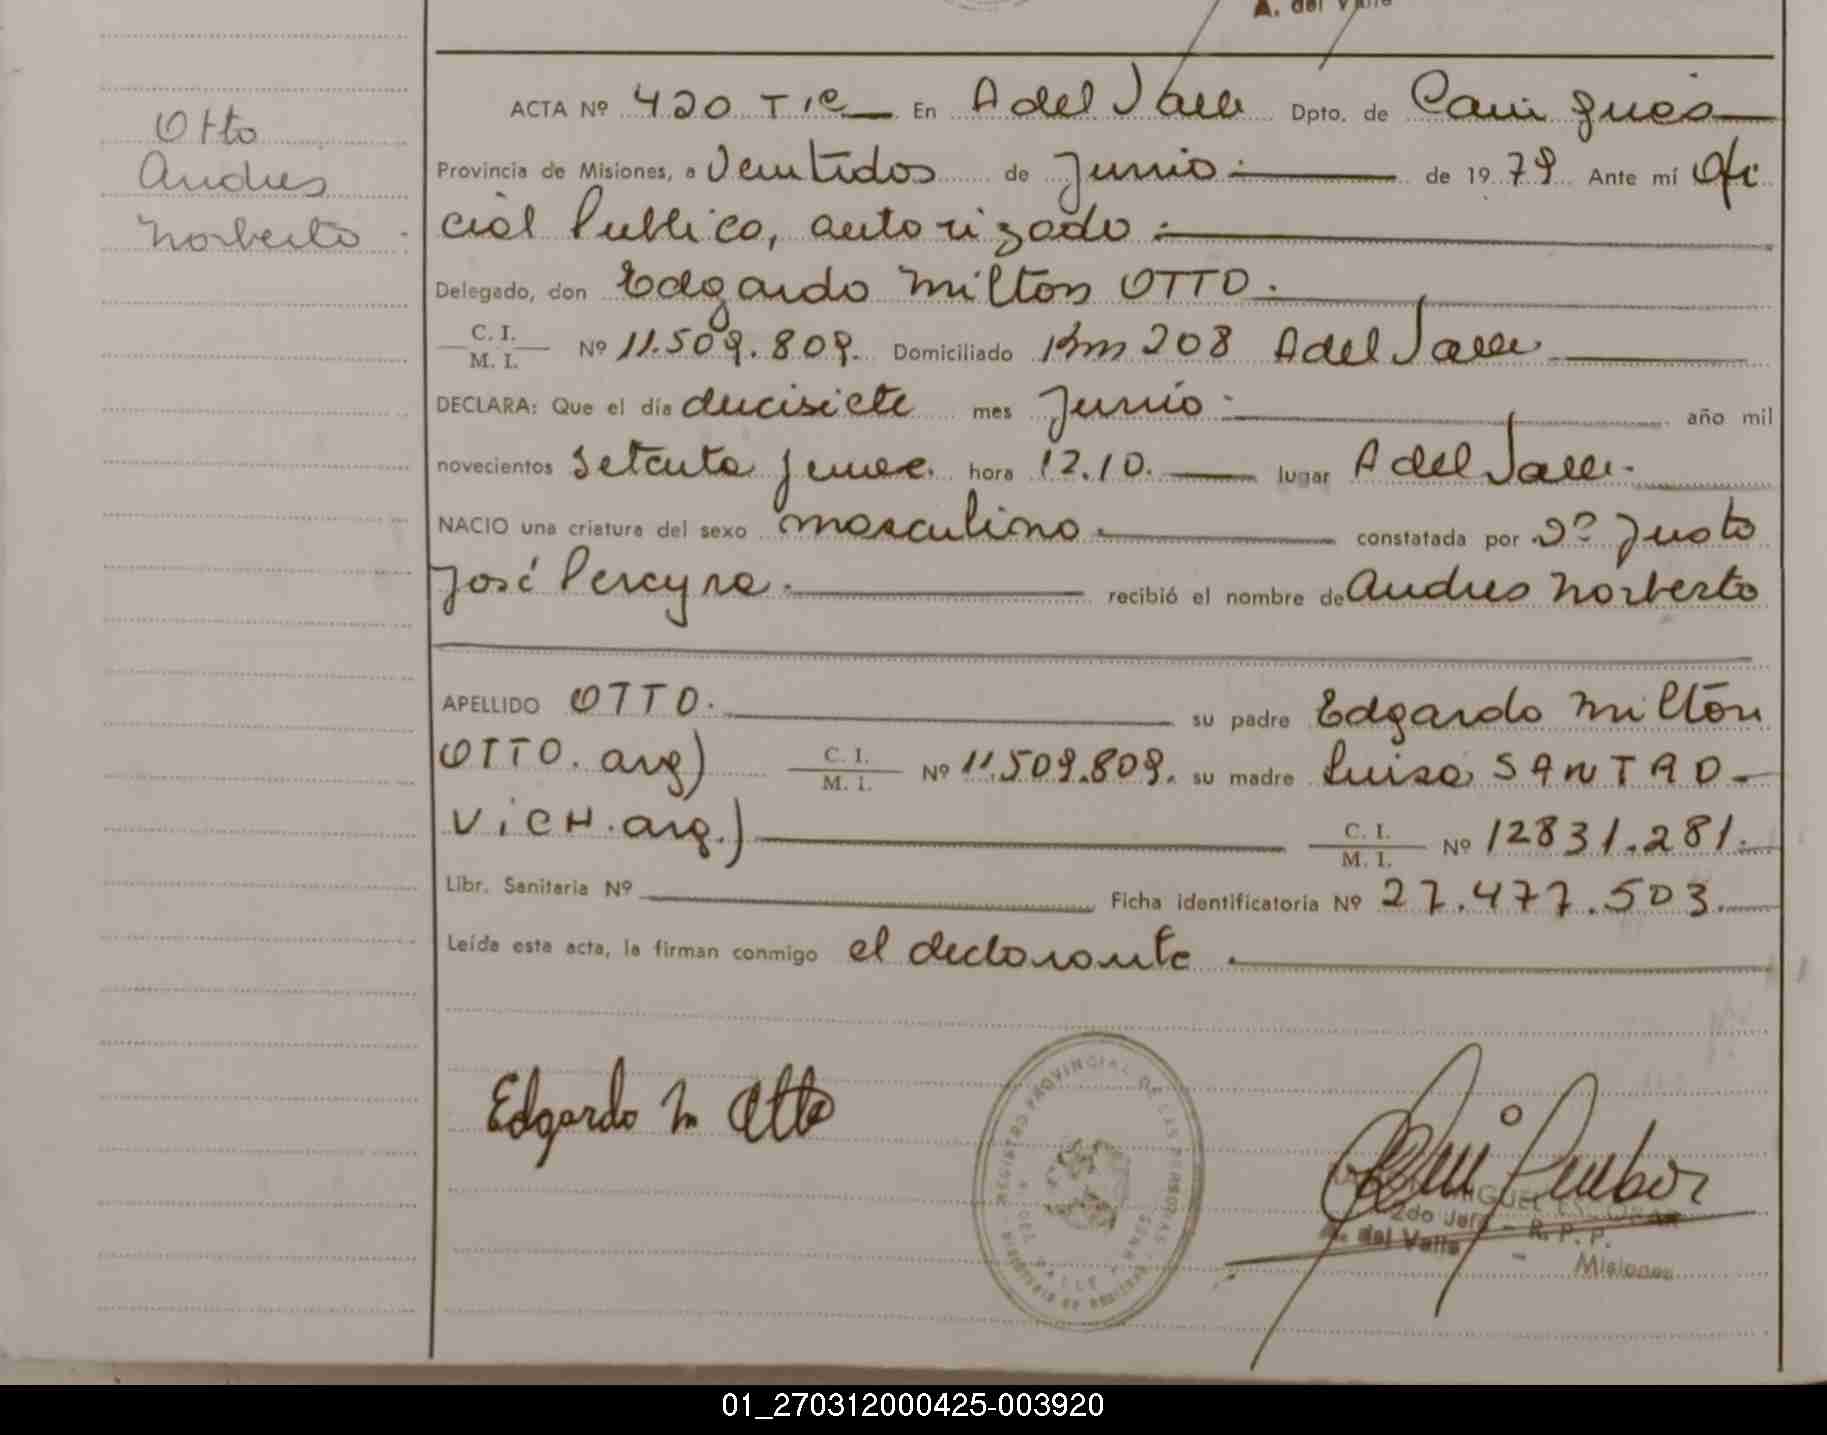 A. del Valle
Otto
Andres
Norberto
ACTA Nº 420 T I C En A del Valle Dpto. de Cainguás
Provincia de Misiones, a Veintidos de Junio de 1979 Ante mí Ofi
cial Publico, autorizado
Delegado, don Edgardo Milton OTTO.
C. I. / M. I. Nº 11.509.809. Domiciliado Km 208 A del Valle
DECLARA: Que el día diecisiete mes Junio año mil
novecientos setenta y nueve. hora 12.10. lugar A del Valle.
NACIO una criatura del sexo masculino constatada por Dº Justo
José Pereyra. recibió el nombre de Andres Norberto
APELLIDO OTTO. su padre Edgardo Milton
OTTO. arg) C. I. / M. I. Nº 11.509.809. su madre Luisa SANTAO-
VICH. arg.) C. I. / M. I. Nº 12831.281.
Libr. Sanitaria Nº Ficha identificatoria Nº 27.477.503.
Leída esta acta, la firman conmigo el declarante.
Edgardo M Otto
REGISTRO PROVINCIAL DE LAS PERSONAS
DEL VALLE
MIGUEL ESCOBAR
2do Jefe - R. P. P.
A. del Valle - Misiones
01_270312000425-003920